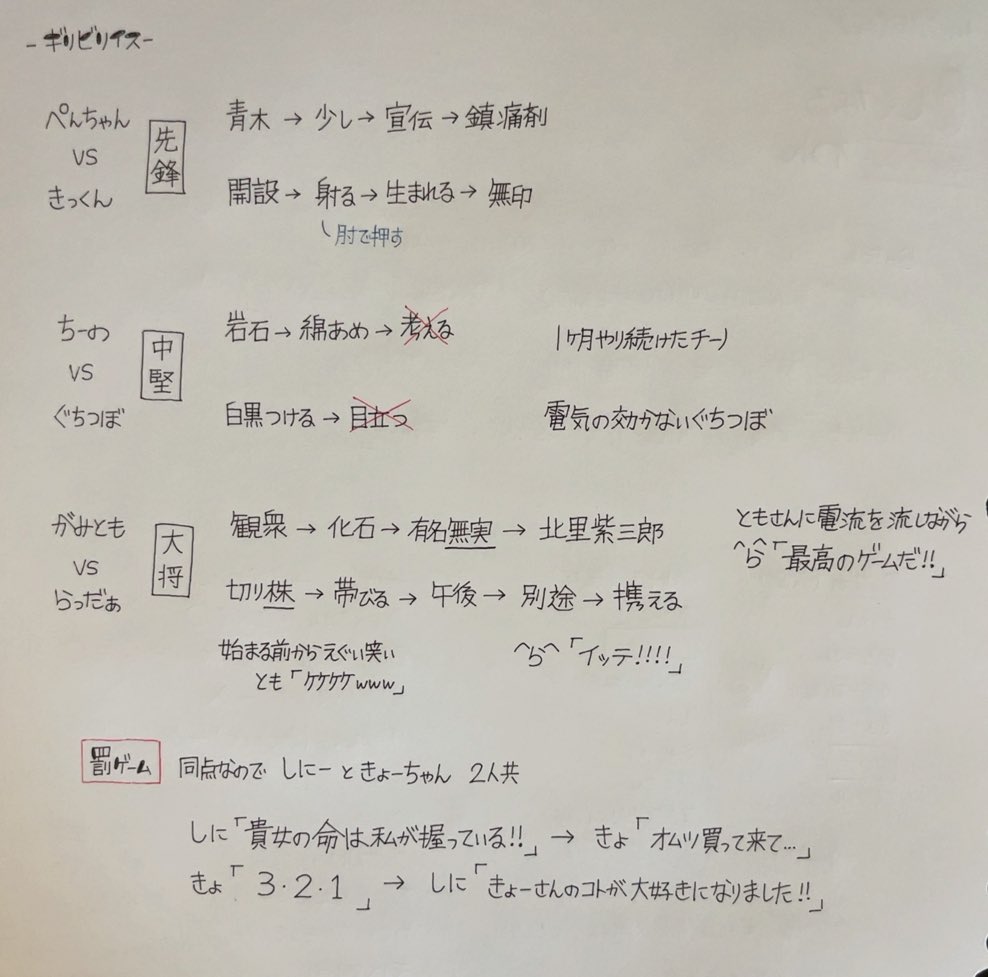 -ギリビリイス-
ぺんちゃん
VS
きっくん
先鋒
青木→少し→宣伝→鎮痛剤
開設→射る→生まれる→無印
肘で押す
ちーの
VS
ぐちつぼ
中堅
岩石→綿あめ→考える
1ヶ月やり続けたチーノ
白黒つける→目立つ
電気の効かないぐちつぼ
がみとも
VS
らっだぁ
大将
観衆→化石→有名無実→北里紫三郎
切り株→帯びる→午後→別途→携える
ともさんに電流を流しながら
^ら^「最高のゲームだ!!」
始まる前からえぐい笑い
とも「ケケケケwww」
^ら^「イッテ!!!!」
罰ゲーム
同点なので しにーときょーちゃん 2人共
しに「貴女の命は私が握っている!!」→ きょ「オムツ買って来て…」
きょ「3・2・1」→ しに「きょーさんのコトが大好きになりました!!」